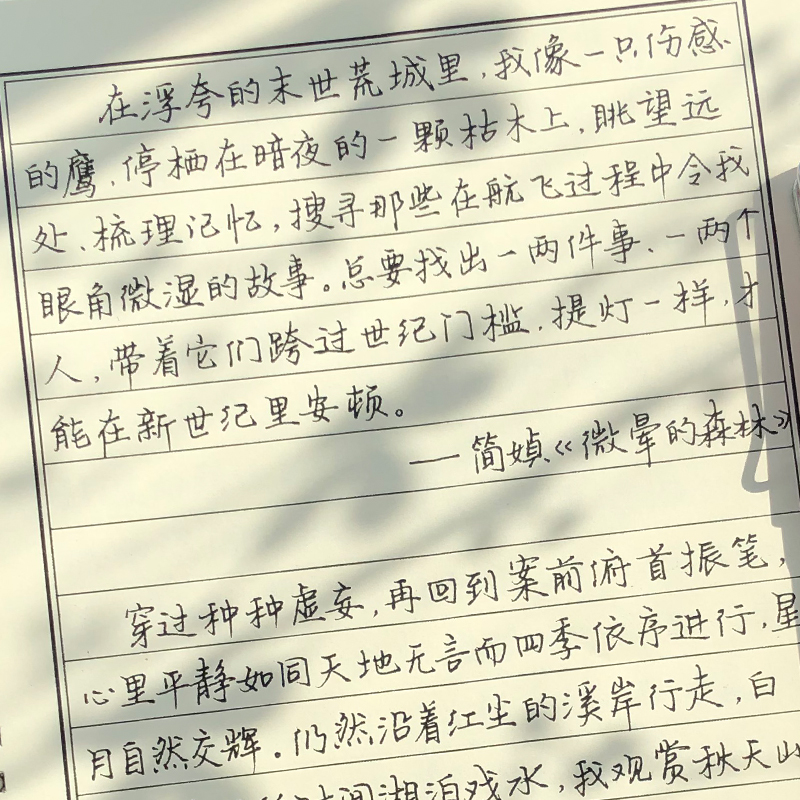 在浮夸的末世荒城里,我像一只伤感
的鹰,停栖在暗夜的一颗枯木上,眺望远
处、梳理记忆,搜寻那些在航飞过程中令我
眼角微湿的故事。总要找出一两件事、一两个
人,带着它们跨过世纪门槛,提灯一样,才
能在新世纪里安顿。
——简媜《微晕的森林》
穿过种种虚妄,再回到案前俯首振笔,
心里平静如同天地无言而四季依序进行,星
月自然交辉。仍然沿着红尘的溪岸行走,白
时间湖泊戏水,我观赏秋天山